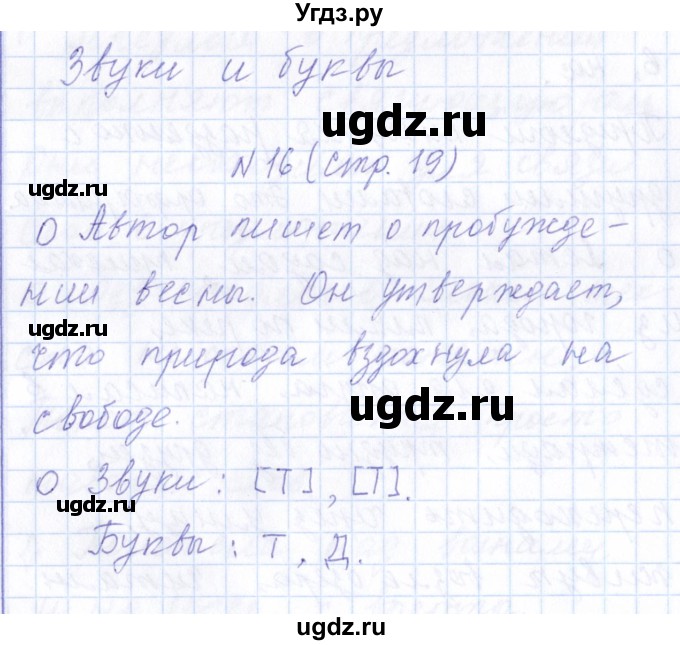 Угдз.ру
Звуки и буквы
ugdz.ru
N 16 (стр. 19)
ugdz.ru
О Автор пишет о пробужде-
нии весны. Он утверждает,
ugdz.ru
что природа вздохнула на
свободе.
ugdz.ru
О Звуки: [Т], [Т].
ugdz.ru
Буквы: Т, Д.
ugdz.ru